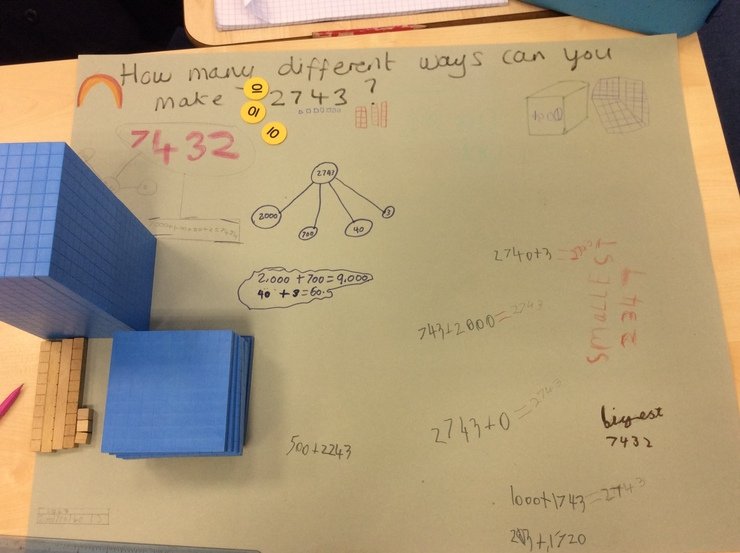 How many different ways can you
make 2743?
10
10
10
1000
7432
2743
2000
700
40
3
2740+3=
2,000 + 700 = 9,000
40 + 3 = 60.5
743+2000=2743
SMALLEST
2347
2743+0=2743
biggest
7432
500+2243
1000+1743=2743